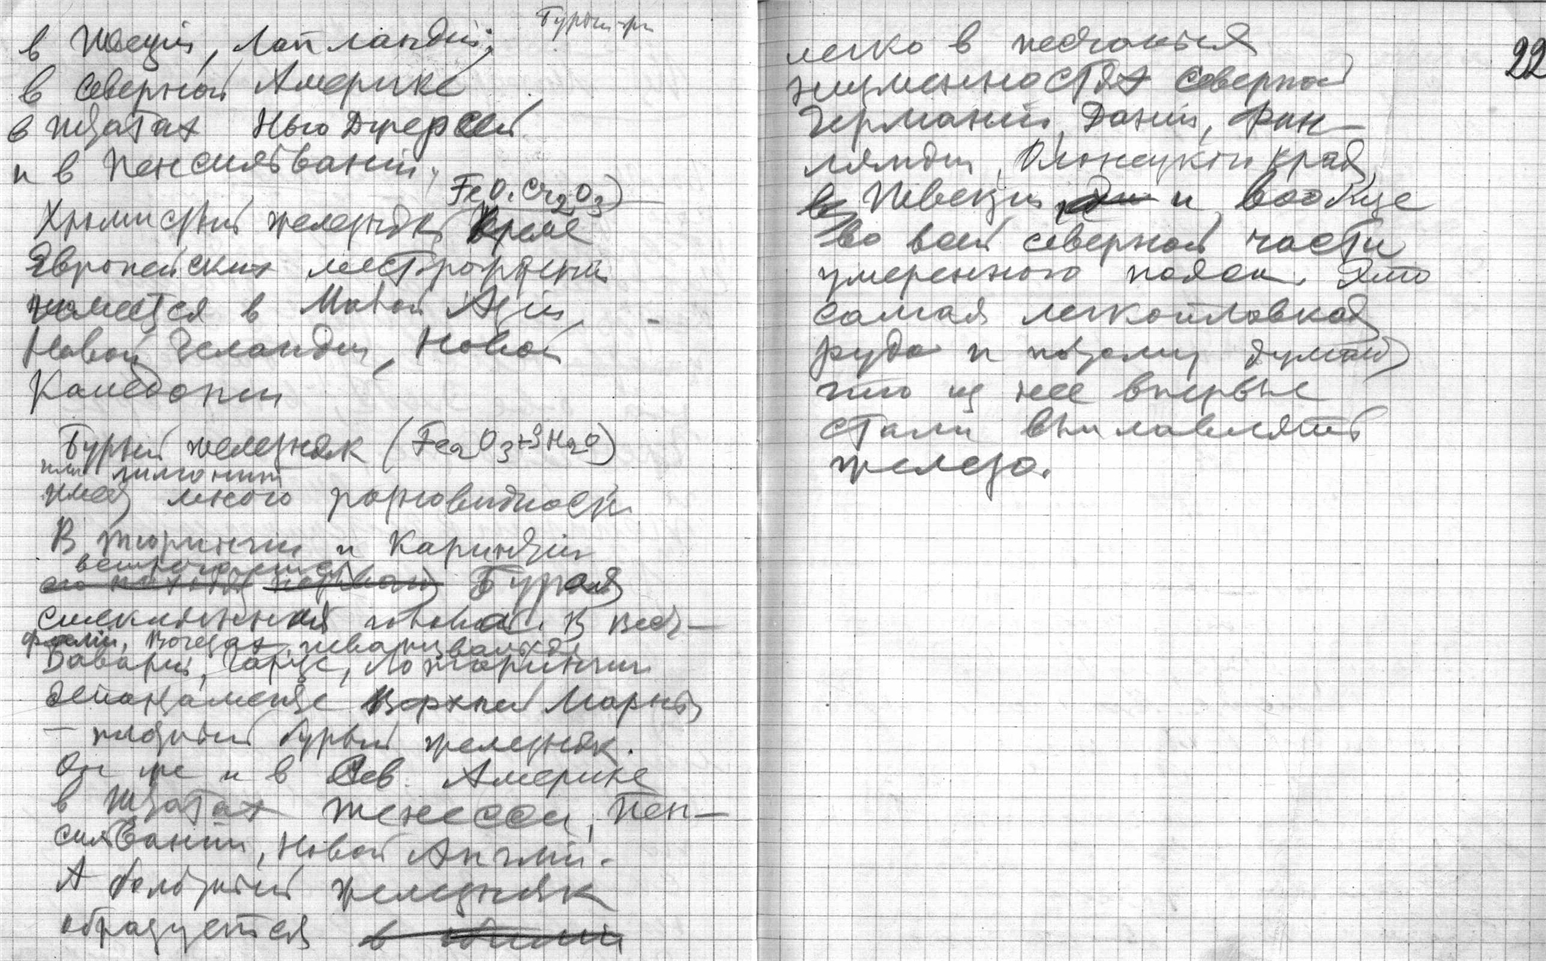 в Швеции, Лапландии;
в северной Америке
в штатах Нью Джерсей
и в Пенсильвании,
FeO.Cr2O3)
Хромистый железняк кроме
Европейских месторожден.
имеется в Малой Азии,
Новой Зеландии, Новой
Каледонии
Бурый железняк (Fe2O3+3H2O)
или лимонит
имеет много разновидности
В Тюрингии и Каринтии
встречается
Бурая
стеклянная голова. В Вест-
фалии, Вогезах, Шварцвальде
Баварии, Гарце, Лотарингии
департаменте Верхней Марны
– плотный бурый железняк.
Он же и в Сев. Америке
в штатах Тенесси, Пен-
сильвании, Новой Англии.
А болотный железняк
образуется
22
легко в песчаных
низменностях северной
Германии, Дании, Фин-
ляндии, Олонецкий край,
в Швеции и вообще
во всей северной части
умеренного пояса. Это
самая легкоплавкая
руда и поэтому думают
что из нее впервые
стали выплавлять
железо.